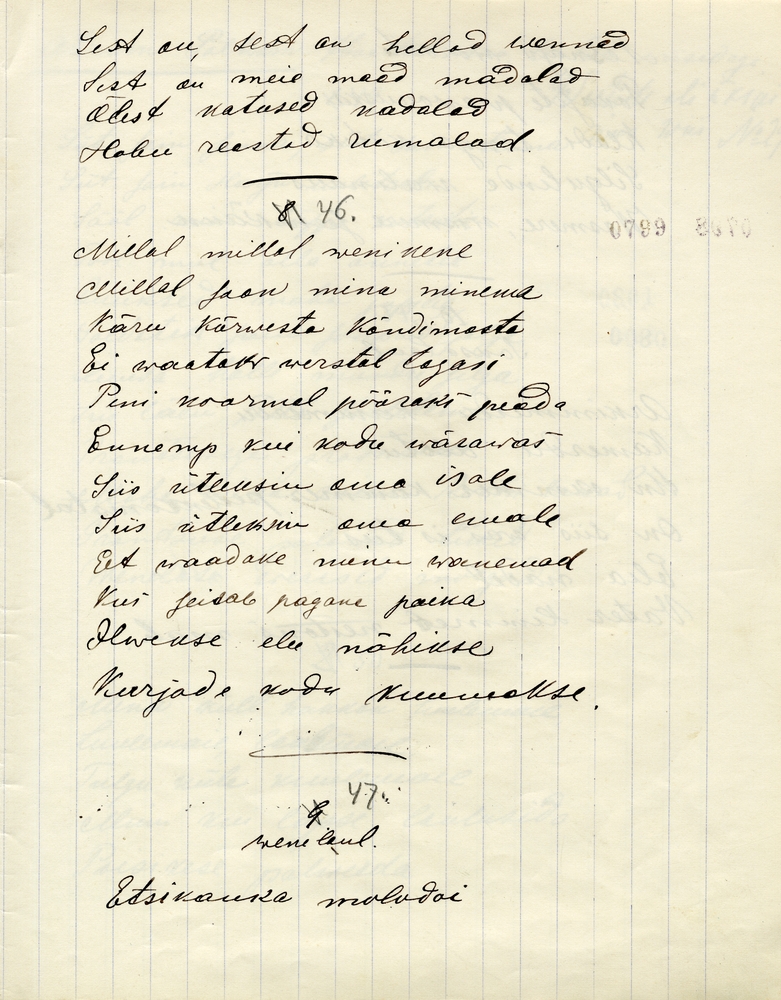 Sest on, sest on hellad wennad
Sest on meie maad madalad
Õlest katused kadalad
Hobu reastad rumalad.
46.
0799
Millal millal wenikene
Millal saan mina minema
Käru kõrwesta kõndimasta
Ei waataks werstal tagasi
Peni koormal pööraks peada
Ennemp kui kodu wärawas
Siis ütleksin oma isale
Siis ütleksin oma emale
Et waadake minu wanemad
Kus seisab pagana paika
Ilwekse elu nähikse
Kurjade kodu kuumakse.
47.
9
wene laul.
Etsikauka molodoi